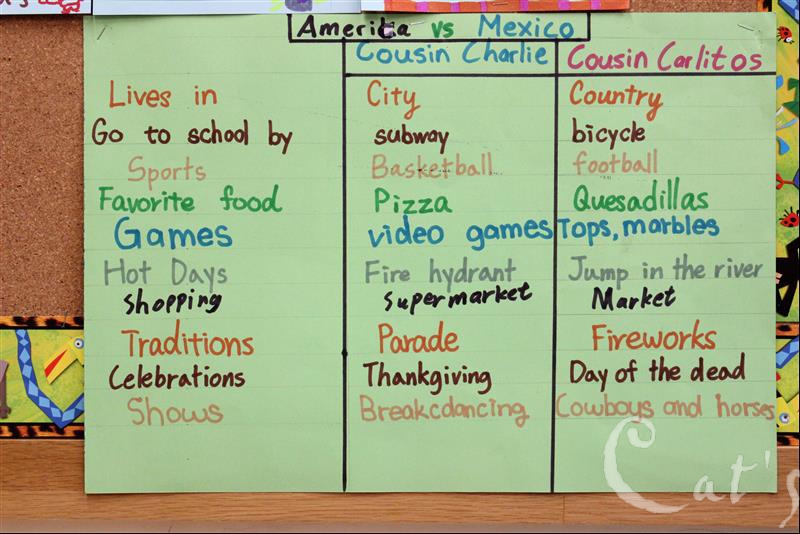 America vs Mexico
Cousin Charlie Cousin Carlitos
Lives in City Country
Go to school by subway bicycle
Sports Basketball football
Favorite food Pizza Quesadillas
Games video games Tops, marbles
Hot Days Fire hydrant Jump in the river
shopping supermarket Market
Traditions Parade Fireworks
Celebrations Thankgiving Day of the dead
Shows Breakcdancing Cowboys and horses
Cat's